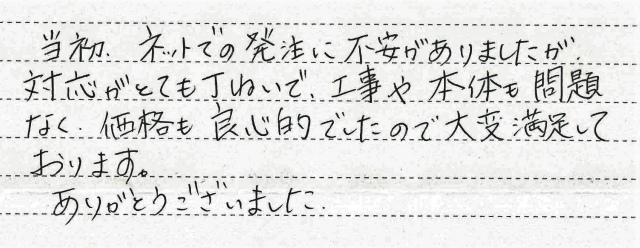 当初、ネットでの発注に不安がありましたが、
対応がとても丁ねいで、工事や本体も問題
なく、価格も良心的でしたので大変満足して
おります。
ありがとうございました。